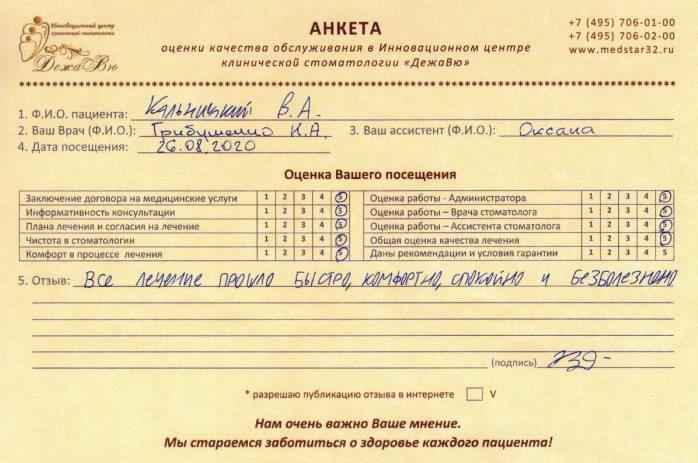 Инновационный центр
клинической стоматологии
ДежаВю
АНКЕТА
оценки качества обслуживания в Инновационном центре
клинической стоматологии «ДежаВю»
+7 (495) 706-01-00
+7 (495) 706-02-00
www.medstar32.ru
1. Ф.И.О. пациента: Кальницкий В.А.
2. Ваш Врач (Ф.И.О.): Грибушенко К.А. 3. Ваш ассистент (Ф.И.О.): Оксана
4. Дата посещения: 26.08.2020
Оценка Вашего посещения
Заключение договора на медицинские услуги 1 2 3 4 5
Информативность консультации 1 2 3 4 5
Плана лечения и согласия на лечение 1 2 3 4 5
Чистота в стоматологии 1 2 3 4 5
Комфорт в процессе лечения 1 2 3 4 5
Оценка работы - Администратора 1 2 3 4 5
Оценка работы – Врача стоматолога 1 2 3 4 5
Оценка работы – Ассистента стоматолога 1 2 3 4 5
Общая оценка качества лечения 1 2 3 4 5
Даны рекомендации и условия гарантии 1 2 3 4 5
5. Отзыв: Все лечение прошло быстро, комфортно, спокойно и безболезнено
(подпись)
* разрешаю публикацию отзыва в интернете V
Нам очень важно Ваше мнение.
Мы стараемся заботиться о здоровье каждого пациента!